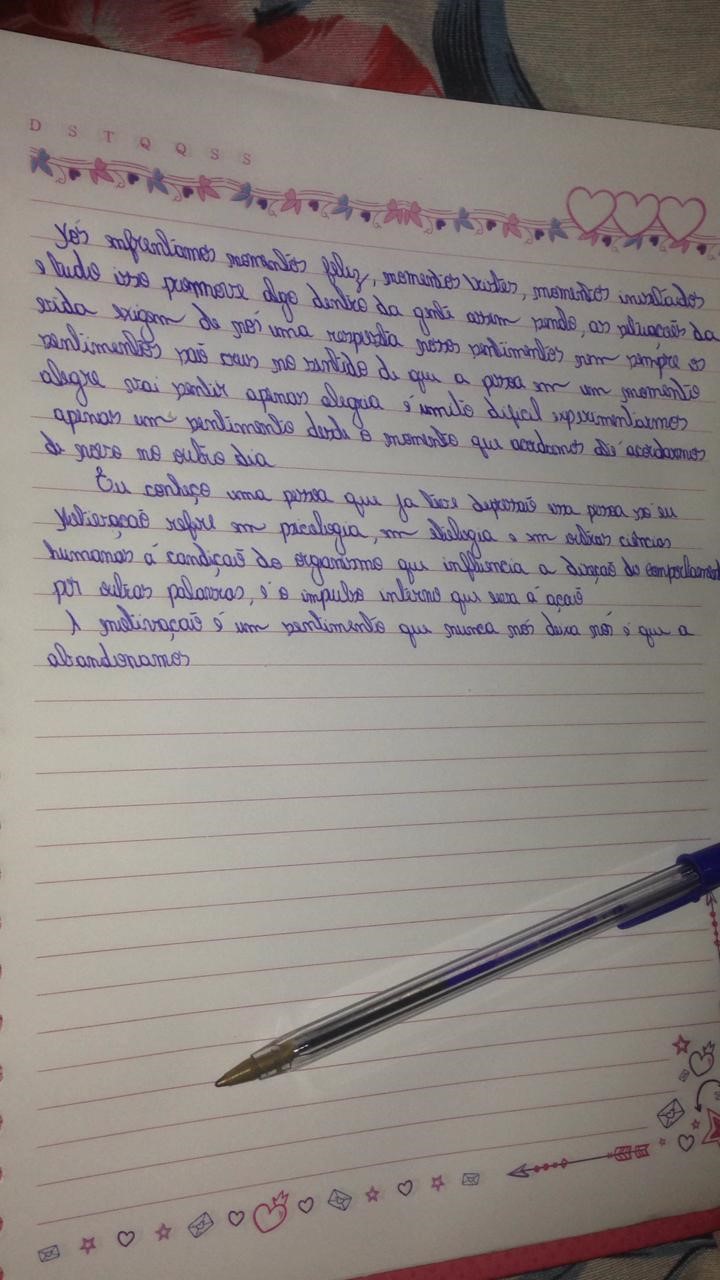 D S T Q Q S S
Nós enfrentamos momentos feliz, momentos tristes, momentos inusitados
e tudo isso promove algo dentro da gente assim sendo, as situações da
vida exigem de nós uma resposta nossos sentimentos nem sempre os
sentimentos são no sentido de que a pessoa em um momento
alegre vai sentir apenas alegria é muito dificil experimentarmos
apenas um sentimento desde o momento que acordamos até acordarmos
de novo no outro dia
Eu conheço uma pessoa que ja teve depressão essa pessoa so eu
Motivação refere em psicologia, em etologia e em outras ciências
humanas á condição do organismo que influencia a direção do comportamento
por outras palavras, é o impulso interno que leva á ação
A motivação é um sentimento que nunca nos deixa nós é que a
abandonamos